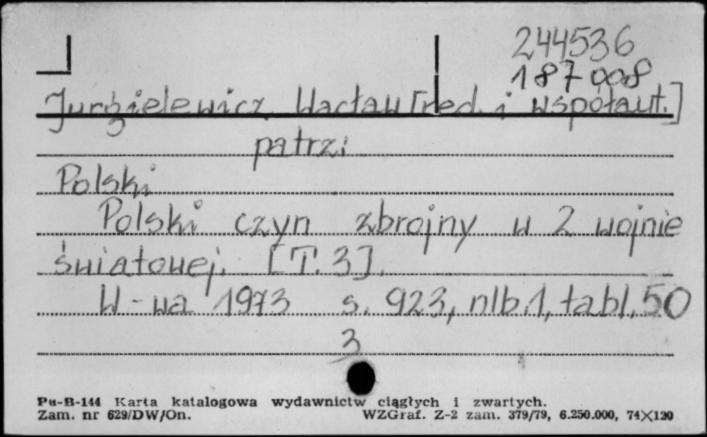 244536
187008
Jurgielewicz Wacław [red. i współaut.]
patrz:
Polski
Polski czyn zbrojny w 2 wojnie
światowej. [T. 3].
W-wa 1973 s. 923, nlb.1, tabl. 50
3
Pu-B-144 Karta katalogowa wydawnictw ciągłych i zwartych.
Zam. nr 629/DW/On. WZGraf. Z-2 zam. 379/79, 6.250.000, 74X120